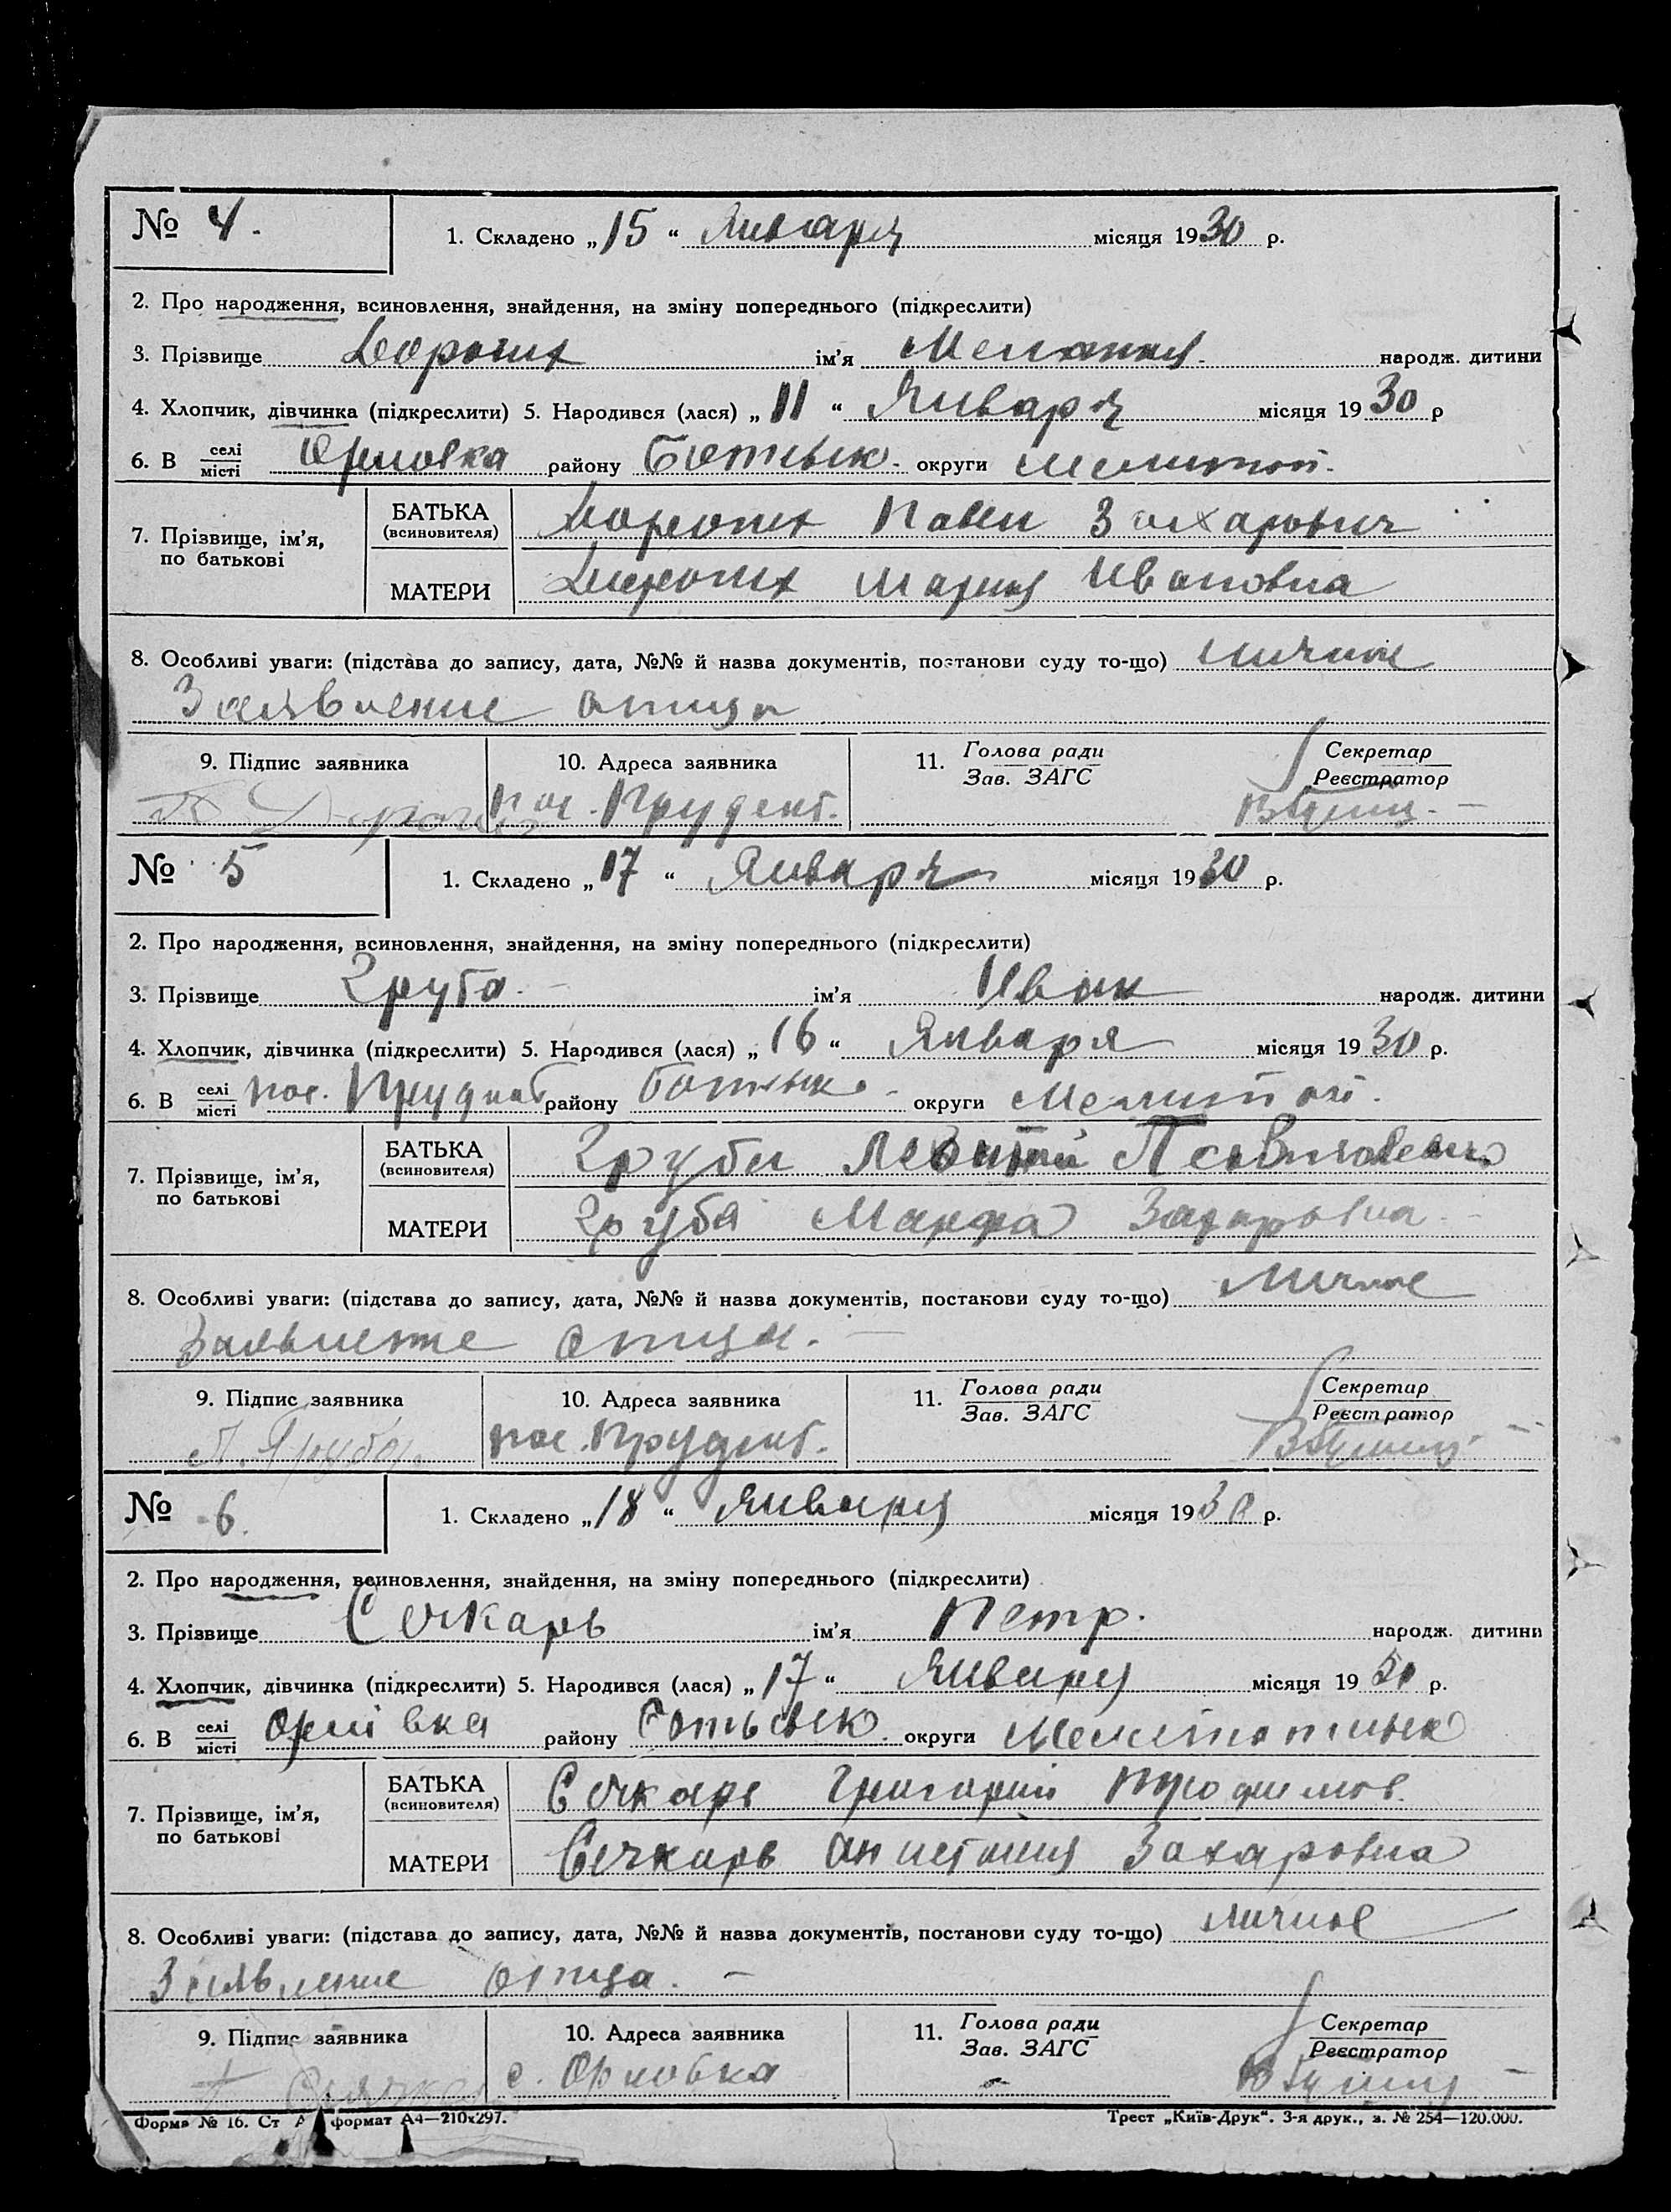 № 4.
1. Складено „15“ Января місяця 1930 р.
2. Про народження, всиновлення, знайдення, на зміну попереднього (підкреслити)
3. Прізвище ім’я Мелания. народж. дитини
4. Хлопчик, дівчинка (підкреслити) 5. Народився (лася) „11“ Января місяця 1930 р
6. В селі місті Орловка району округи Мелитоп.
7. Прізвище, ім’я, по батькові
БАТЬКА (всиновителя) Павел Захарович
МАТЕРИ Мария Ивановна
8. Особливі уваги: (підстава до запису, дата, №№ й назва документів, постанови суду то-що) личное
Заявление отца
9. Підпис заявника
10. Адреса заявника
11. Голова ради Зав. ЗАГС
Секретар Реєстратор
пос.
№ 5
1. Складено „17“ Января місяця 1930 р.
2. Про народження, всиновлення, знайдення, на зміну попереднього (підкреслити)
3. Прізвище Груба ім’я Иван народж. дитини
4. Хлопчик, дівчинка (підкреслити) 5. Народився (лася) „16“ Января місяця 1930 р.
6. В селі місті пос. району округи Мелитоп.
7. Прізвище, ім’я, по батькові
БАТЬКА (всиновителя) Груба
МАТЕРИ Груба Марфа Захаровна
8. Особливі уваги: (підстава до запису, дата, №№ й назва документів, постанови суду то-що) Личное
Заявление отца.
9. Підпис заявника
10. Адреса заявника
11. Голова ради Зав. ЗАГС
Секретар Реєстратор
Л. Груба. пос.
№ 6.
1. Складено „18“ Января місяця 1930 р.
2. Про народження, всиновлення, знайдення, на зміну попереднього (підкреслити)
3. Прізвище Сечкарь ім’я Петр. народж. дитини
4. Хлопчик, дівчинка (підкреслити) 5. Народився (лася) „17“ Января місяця 1930 р.
6. В селі місті Орлівка району округи
7. Прізвище, ім’я, по батькові
БАТЬКА (всиновителя) Сечкарь Григорий Трофимов.
МАТЕРИ Сечкарь Захаровна
8. Особливі уваги: (підстава до запису, дата, №№ й назва документів, постанови суду то-що) личное
Заявление отца.
9. Підпис заявника
10. Адреса заявника
11. Голова ради Зав. ЗАГС
Секретар Реєстратор
с. Орловка
Форма № 16. Ст формат А4—210х297.
Трест „Київ-Друк“. 3-я друк., з. № 254—120.000.